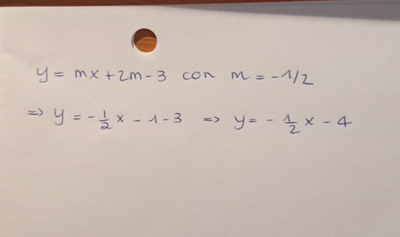 y = mx + 2m - 3 con m = -1/2
=> y = -1/2 x - 1 - 3 => y = -1/2 x - 4